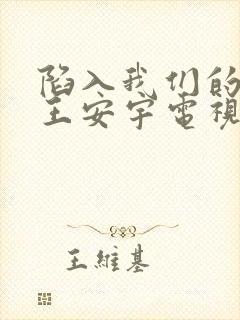 陷入我们的
王安宇電視
王維基